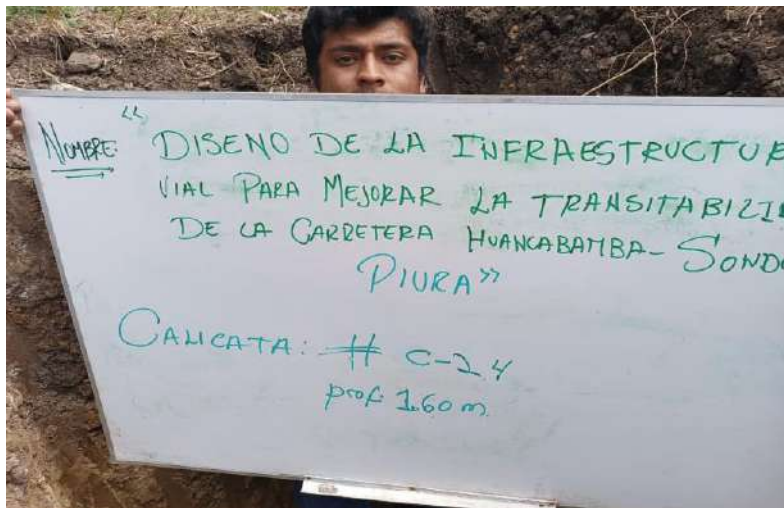 NOMBRE: "DISEÑO DE LA INFRAESTRUCTUR
VIAL PARA MEJORAR LA TRANSITABILI
DE LA CARRETERA HUANCABAMBA- SONDO
PIURA"
CALICATA: # C-24
prof: 1.60 m